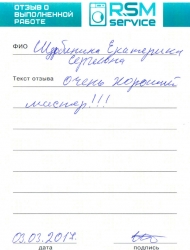 ОТЗЫВ О
ВЫПОЛНЕННОЙ
РАБОТЕ
RSM
service
ФИО Щербинина Екатерина
Сергеевна
Текст отзыва Очень хороший
мастер!!!
03.03.2017
дата подпись